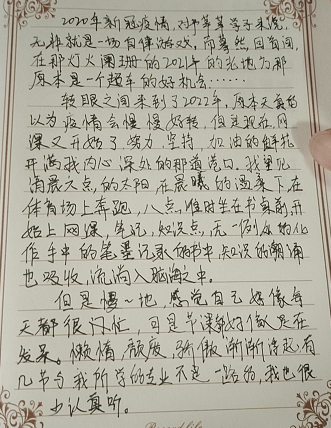 2020年新冠疫情,对莘莘学子来说,
无非就是一场自律游戏,而蓦然回首间,
在那灯火阑珊的2021年的
原本是一个超车的好机会……
转眼之间来到了2022年,原本天真的
以为疫情会慢慢好转,但是现在,网
课又开始了,努力,坚持,加油的鲜花
开满我内心深处的那道
清晨六点的太阳,在晨曦的温柔下在
体育场上奔跑,八点,准时坐在书桌前开
始上网课,笔记,知识点,无一例外的化
作手中的笔墨记录在书中,知识的潮涌
也吸收,流淌入脑海之中。
但是慢~地,感觉自己好像每
天都很忙,可是节课都好像是在
发呆。懒惰,颓废,骄傲渐渐浮起,有
几节与我所学的专业不是一路的,我也很
少认真听。